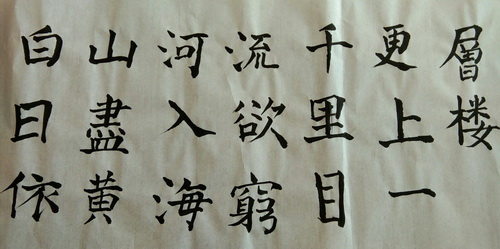 白日依
山盡黄
河入海
流欲窮
千里目
更上一
層楼